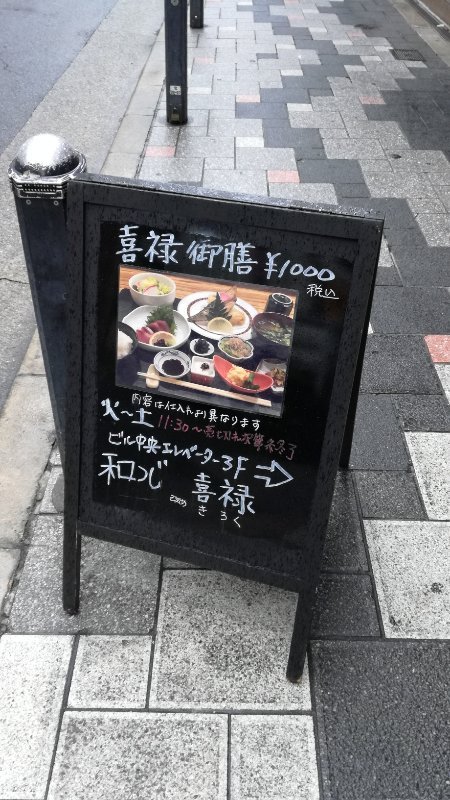 喜禄御膳 ¥1000
税込
内容は仕入れより異なります
火〜土 11:30〜売り切れ次第終了
ビル中央エレベーター3F
和つじ 喜禄
きろく